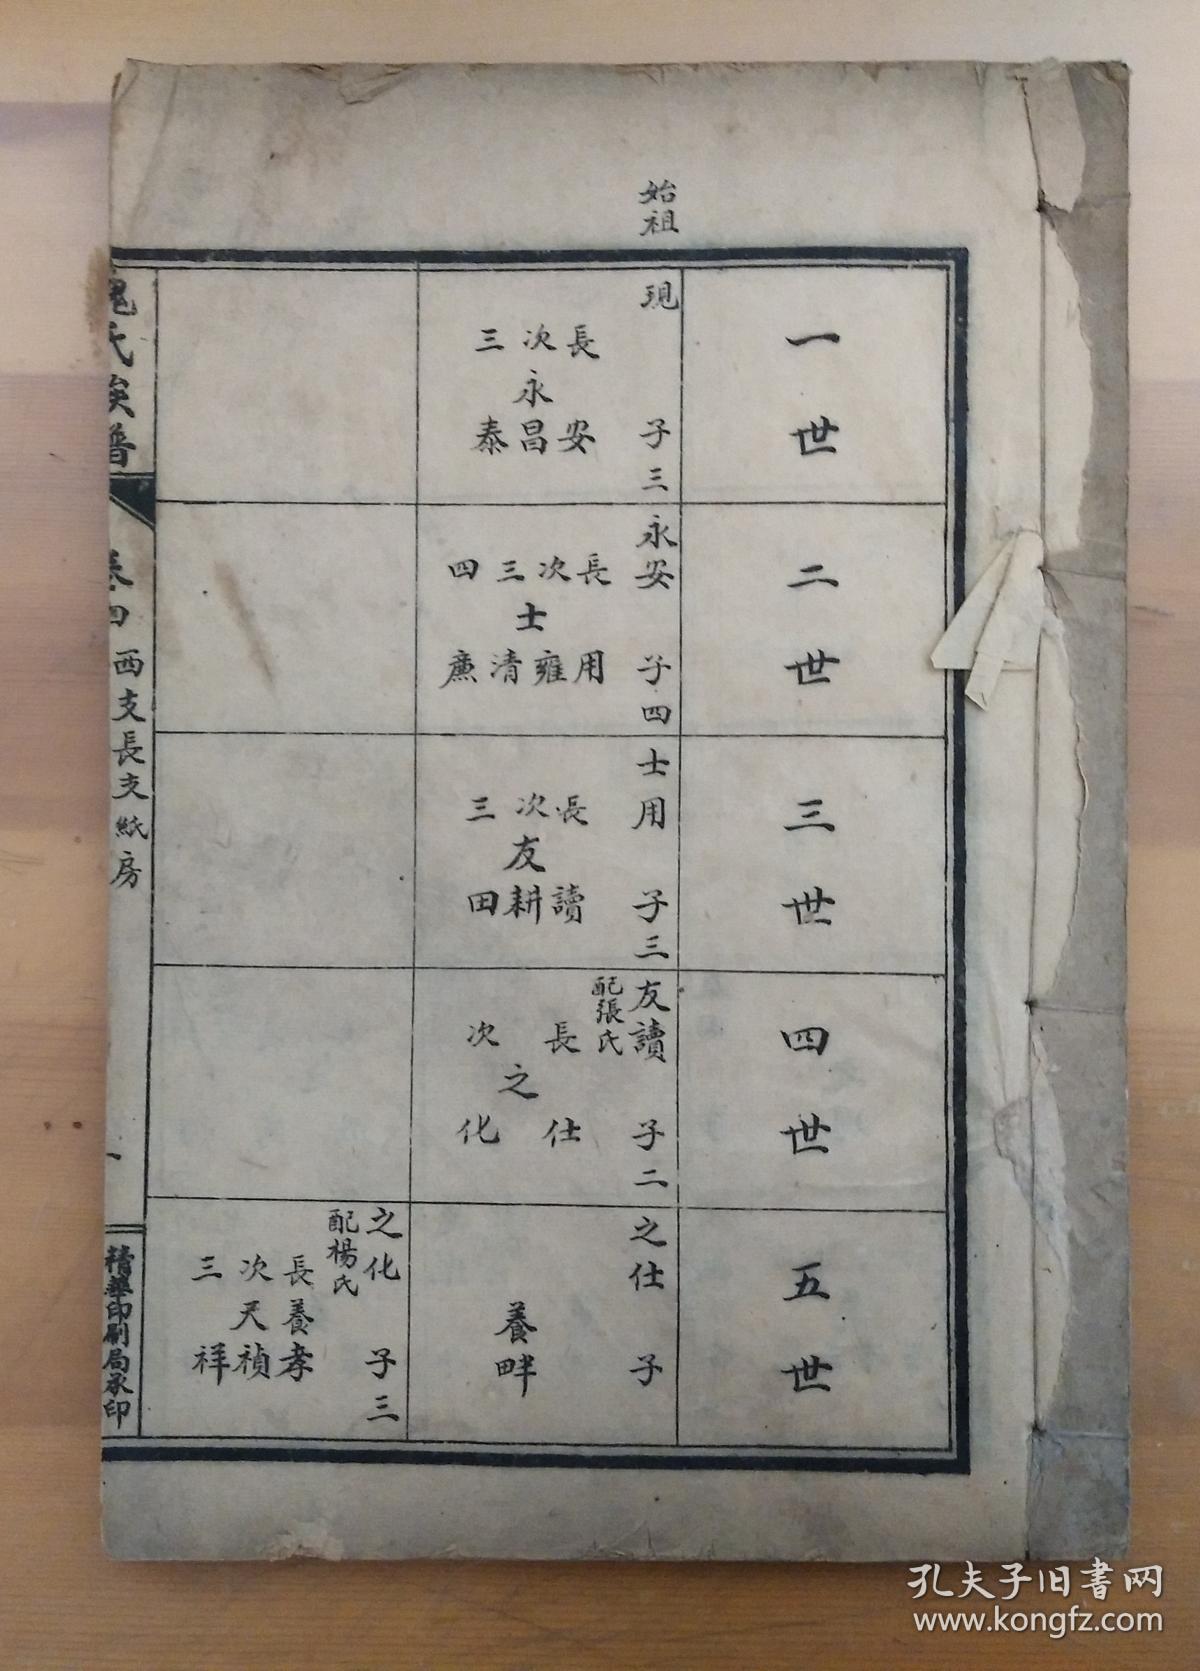 始祖
一世
現 子三
長 次 三
永
安 昌 泰
二世
永安 子四
長 次 三 四
士
用 雍 清 廉
三世
士用 子三
長 次 三
友
讀 耕 田
四世
友讀 子二
配張氏
長 次
之
仕 化
五世
之仕 子
養畔
之化 子三
配楊氏
長 次 三
養 天
孝 禎 祥
氏族譜
卷四 西支長支紙房
一
精華印刷局承印
孔夫子旧書网
www.kongfz.com